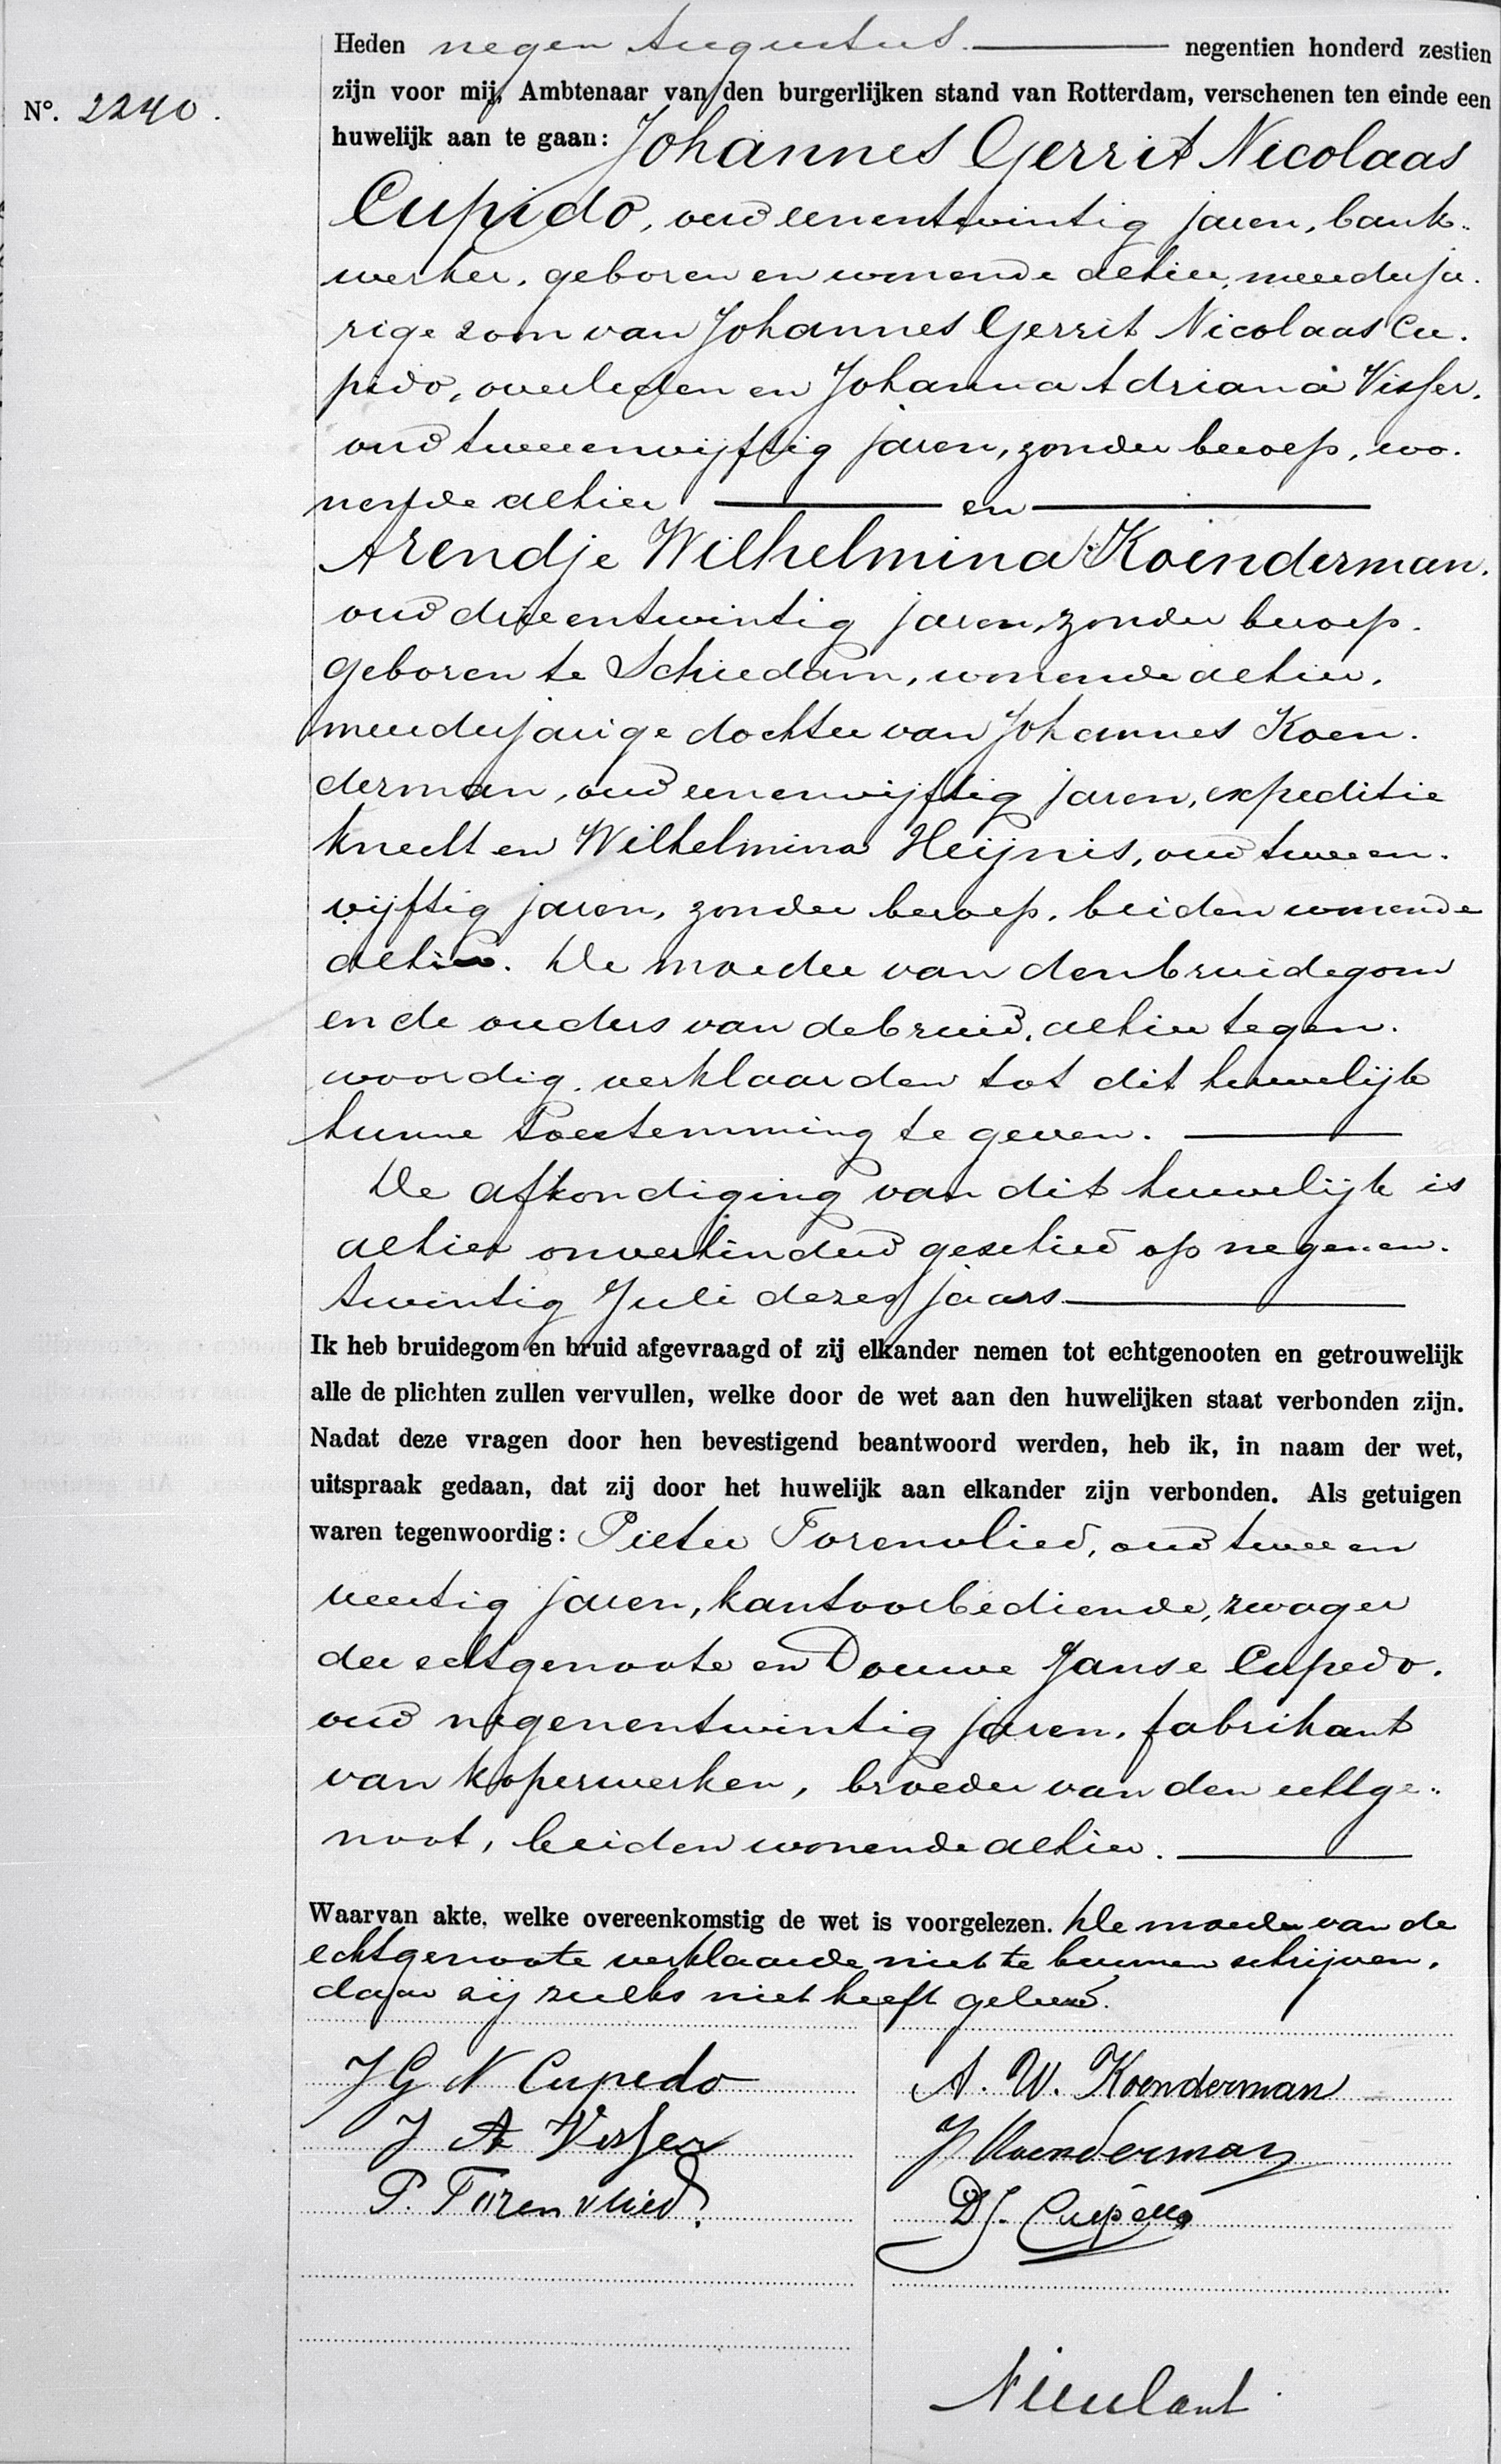 Heden negen Augustus. negentien honderd zestien
zijn voor mij, Ambtenaar van den burgerlijken stand van Rotterdam, verschenen ten einde een
Nº. 2240.
huwelijk aan te gaan: Johannes Gerrit Nicolaas
Cupido, oud eenentwintig jaren, bank-
werker, geboren en wonende alhier, meerderja-
rige zoon van Johannes Gerrit Nicolaas Cu-
pido, overleden en Johanna Adriana Visser,
oud tweeenvijftig jaren, zonder beroep, wo-
nende alhier en
Arendje Wilhelmina Koenderman,
oud drieentwintig jaren, zonder beroep,
geboren te Schiedam, wonende alhier,
meerderjarige dochter van Johannes Koen-
derman, oud eenenvijftig jaren, expeditie
knecht en Wilhelmina Heijnis, oud tweeen-
vijftig jaren, zonder beroep, beiden wonende
alhier. De moeder van den bruidegom
en de ouders van de bruid, alhier tegen-
woordig, verklaarden tot dit huwelijk
hunne toestemming te geven.
De afkondiging van dit huwelijk is
alhier onverhinderd geschied op negenen-
twintig Juli dezes jaars
Ik heb bruidegom en bruid afgevraagd of zij elkander nemen tot echtgenooten en getrouwelijk
alle de plichten zullen vervullen, welke door de wet aan den huwelijken staat verbonden zijn.
Nadat deze vragen door hen bevestigend beantwoord werden, heb ik, in naam der wet,
uitspraak gedaan, dat zij door het huwelijk aan elkander zijn verbonden. Als getuigen
waren tegenwoordig: Pieter Torenvlied, oud tweeen
veertig jaren, kantoorbediende, zwager
der echtgenoote en Douwe Janse Cupedo,
oud negenentwintig jaren, fabrikant
van koperwerken, broeder van den echtge-
noot, beiden wonende alhier.
Waarvan akte, welke overeenkomstig de wet is voorgelezen. De moeder van de
echtgenoote verklaarde niet te kunnen schrijven,
daar zij zulks niet heeft geleerd.
J G N Cupedo A. W. Koenderman
J A Visser J Koenderman
P. Torenvlied D J. Cupedo